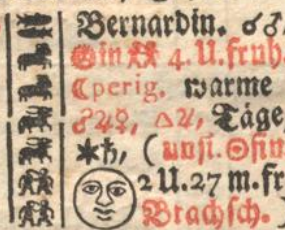 Bernardin. ☌♂,
☉ in ♊ 4. U. früh.
☾ perig. warme
♂☍♀, △♃, Täge,
✶♄, (unſi. ☉fin
2 U. 27 m. fr
Brachſch.)